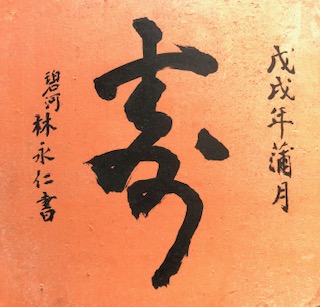 戊戌年蒲月
壽
碧河林永仁書